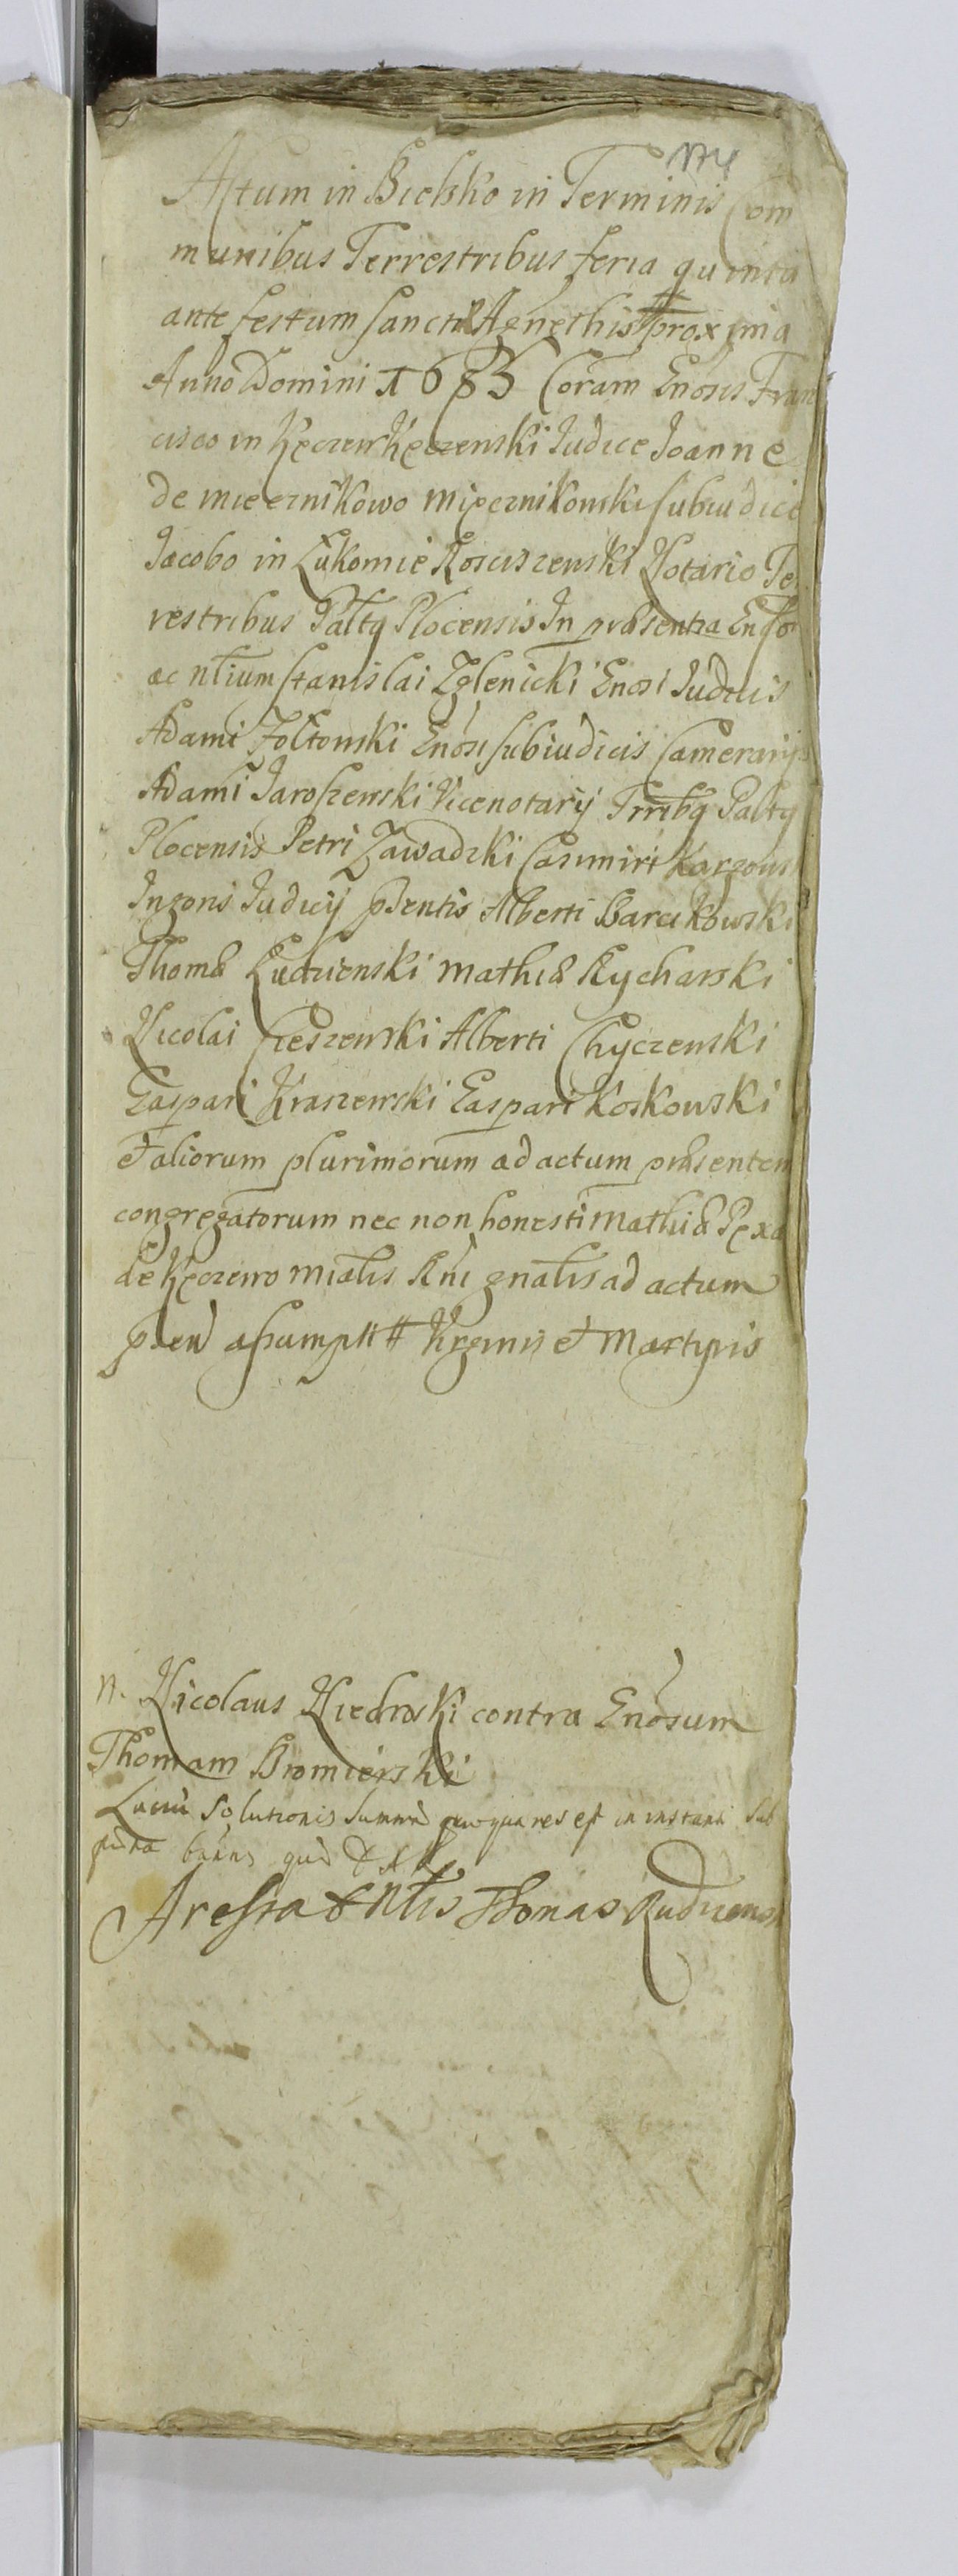 Actum in Bielsko in Terminis Com
munibus Terrestribus feria quinta
ante festum Sanctæ Agnethis # proxima
Anno Domini 1683 Coram Gnosis Fran
cisco in Kęczew Kęczewski Iudice Joanne
de Miecznikowo Miecznikowski Subiudice
Jacobo in Łukomie Rosciszewski Notario Te
restribus Paltq Plocensis In præsentia Gnso
ac Nlium Stanislai Zglenicki Gnosi Iudicis
Adami Zołtowski Gnosi Subiudicis Camerarijs
Adami Jaroszewski Vicenotarij Trribq Paltq
Plocensis Petri Zawadzki Casimiri
Iudicij pśentis Alberti Barcikowski
Thomæ Rudzienski Mathiæ Rycharski
Nicolai Cieszewski Alberti Chyczewski
Gaspari Kraszewski Gaspari Koskowski
et aliorum plurimorum ad actum præsentem
congregatorum nec non honesti Mathiæ Pęxa
de Kęczewo mialis Rni gnalis ad actum
pśen assumpti # Virginis et Martyris
N. Nicolaus Niedroski contra Gnosum
Thomam Bromierski
Lucri Solutionis Summæ pro qua res est in instanti sub
pæna
Aressta Nlis Thomas Rudziensk